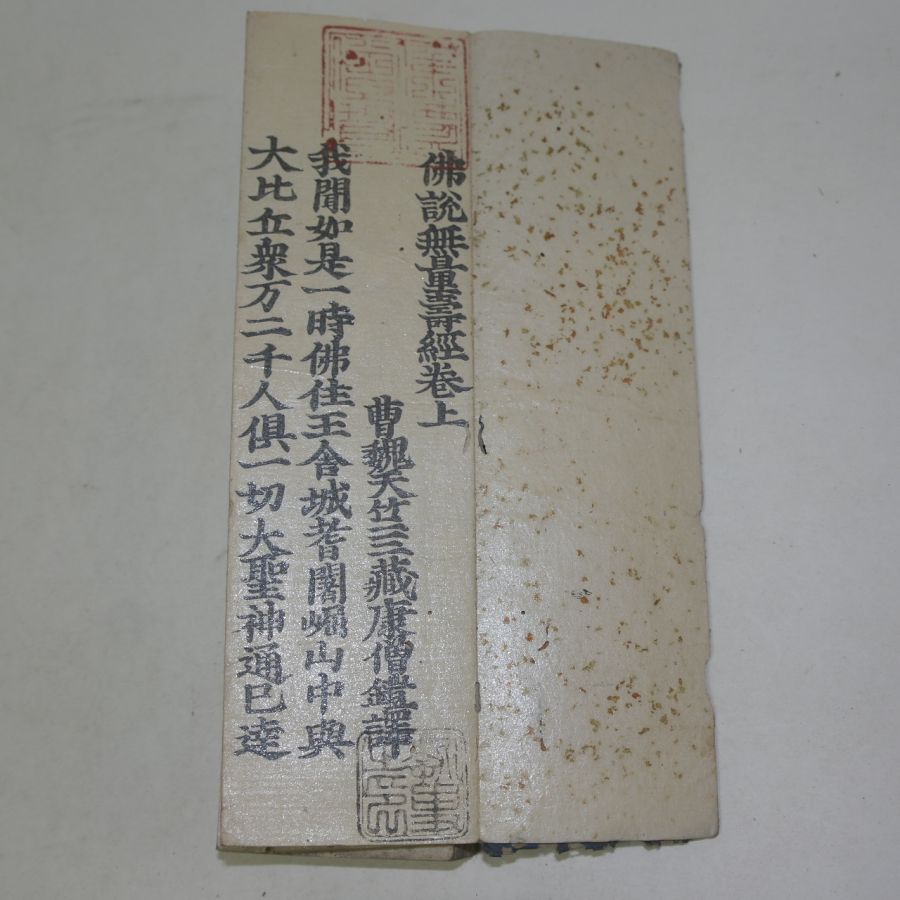 佛說無量壽經卷上
曹魏天竺三藏康僧鎧譯
我聞如是一時佛住王舍城耆闍崛山中與
大比丘衆万二千人俱一切大聖神通已達